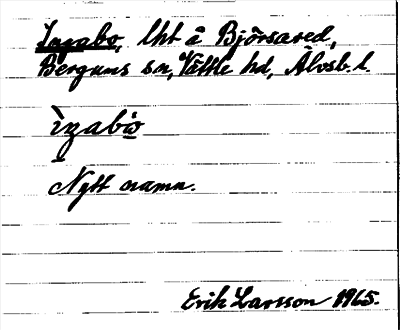 Ingabo, lht å Björsared,
Bergums sn, Vättle hd, Älvsb. l.
ìŋabὼ
Nytt namn.
Erik Larsson 1965.